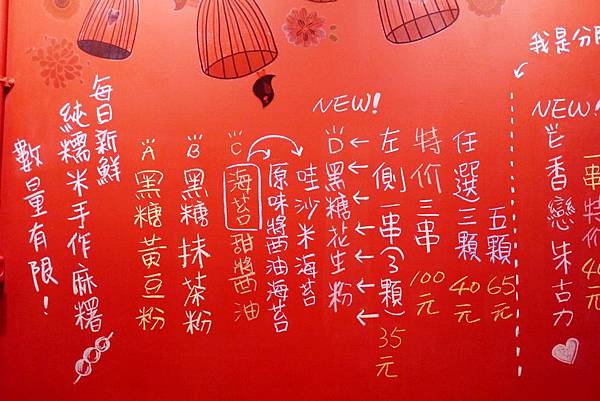 我是分隔
NEW!
E香戀朱古力
一串特价40元
任選三顆40元
五顆65元
特价三串100元
左側一串(3顆)35元
NEW!
D黑糖花生粉
哇沙米海苔
原味醬油海苔
C海苔甜醬油
B黑糖抹茶粉
A黑糖黃豆粉
每日新鮮
純糯米手作麻糬
數量有限!